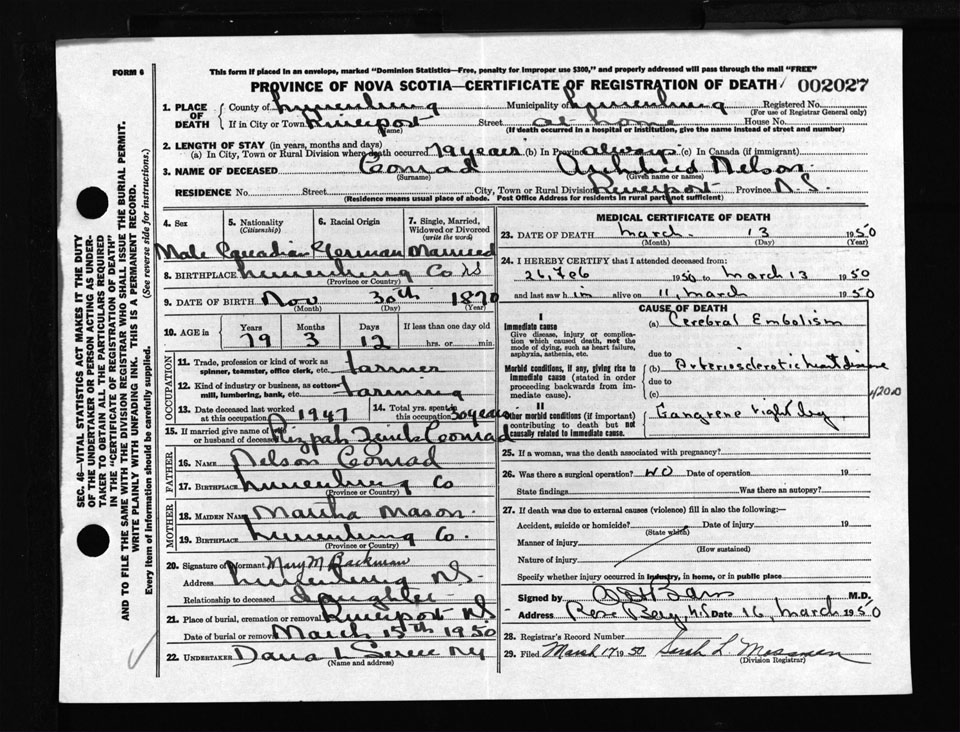 FORM 6
This form if placed in an envelope, marked "Dominion Statistics—Free, penalty for improper use $300," and properly addressed will pass through the mail "FREE"
PROVINCE OF NOVA SCOTIA—CERTIFICATE OF REGISTRATION OF DEATH 002027
1. PLACE OF DEATH County of Lunenburg Municipality of Lunenburg Registered No.
(For use of Registrar General only)
If in City or Town Riverport Street at home House No.
(Name) (If death occurred in a hospital or institution, give the name instead of street and number)
2. LENGTH OF STAY (in years, months and days)
(a) In City, Town or Rural Division where death occurred 79 years (b) In Province always (c) In Canada (if immigrant)
3. NAME OF DECEASED Conrad Archibald Nelson
(Surname) (Given name or names)
RESIDENCE No. Street City, Town or Rural Division Riverport Province N.S.
(Residence means usual place of abode. Post Office Address for residents in rural part not sufficient)
4. Sex 5. Nationality (Citizenship) 6. Racial Origin 7. Single, Married, Widowed or Divorced (write the word)
Male Canadian German Married
8. BIRTHPLACE Lunenburg Co NS
(Province or Country)
9. DATE OF BIRTH Nov 30th 1870
(Month) (Day) (Year)
10. AGE in Years Months Days If less than one day old
79 3 12 hrs. or min.
OCCUPATION
11. Trade, profession or kind of work as spinner, teamster, office clerk, etc. farmer
12. Kind of industry or business, as cotton mill, lumbering, bank, etc. farming
13. Date deceased last worked at this occupation 1947 14. Total yrs. spent in this occupation 50 years
15. If married give name of wife or husband of deceased Rizpah Conrad
FATHER
16. NAME Nelson Conrad
17. BIRTHPLACE Lunenburg Co
(Province or Country)
MOTHER
18. MAIDEN NAME Martha Mason
19. BIRTHPLACE Lunenburg Co.
(Province or Country)
20. Signature of Informant Mary M. Backman
Address Lunenburg NS
Relationship to deceased daughter
21. Place of burial, cremation or removal Riverport NS
Date of burial or removal March 15th 1950
22. UNDERTAKER Dana L
(Name and address)
MEDICAL CERTIFICATE OF DEATH
23. DATE OF DEATH March 13 1950
(Month) (Day) (Year)
24. I HEREBY CERTIFY that I attended deceased from:
26 Feb 1950 to March 13 1950
and last saw him alive on 11, March 1950
CAUSE OF DEATH
I
Immediate cause (a) Cerebral Embolism
Give disease, injury or complication which caused death, not the mode of dying, such as heart failure, asphyxia, asthenia, etc.
due to
Morbid conditions, if any, giving rise to immediate cause (stated in order proceeding backwards from immediate cause).
(b) Arteriosclerotic heart disease
due to
(c)
4200
II
Other morbid conditions (if important) contributing to death but not causally related to immediate cause.
Gangrene right leg
25. If a woman, was the death associated with pregnancy?
26. Was there a surgical operation? NO Date of operation 19
State findings Was there an autopsy?
27. If death was due to external causes (violence) fill in also the following:—
Accident, suicide or homicide? Date of injury 19
(State which)
Manner of injury
(How sustained)
Nature of injury
Specify whether injury occurred in industry, in home, or in public place
Signed by M.D.
Address Rose Bay, N.S. Date 16, March 1950
28. Registrar's Record Number
29. Filed March 17 1950 Sarah L. Mossman
(Division Registrar)
SEC. 46—VITAL STATISTICS ACT MAKES IT THE DUTY
OF THE UNDERTAKER OR PERSON ACTING AS UNDER-
TAKER TO OBTAIN ALL THE PARTICULARS REQUIRED
IN THE "CERTIFICATE OF REGISTRATION OF DEATH"
AND TO FILE THE SAME WITH THE DIVISION REGISTRAR WHO SHALL ISSUE THE BURIAL PERMIT.
WRITE PLAINLY WITH UNFADING INK. THIS IS A PERMANENT RECORD.
Every item of Information should be carefully supplied. (See reverse side for instructions.)